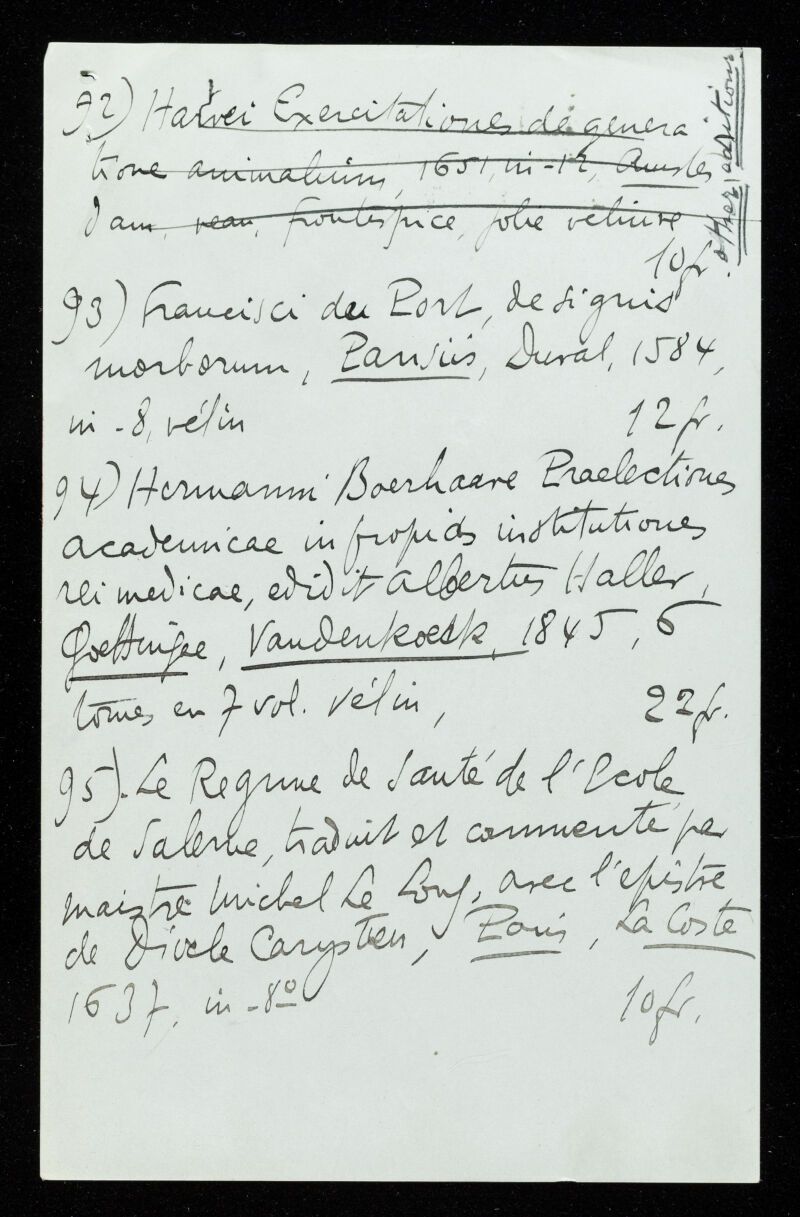 92) Harvei Exercitationes de genera
tione animalium, 1651, in-12, Amster
dam, veau, frontispice, jolie reliure
10 fr.
other editions
93) Francisci du Port, de signis
morborum, Parisiis, Duval, 1584,
in-8, vélin 12 fr.
94) Hermanni Boerhaave Praelectiones
academicae in propias institutiones
rei medicae, edidit Albertus Haller,
Goettingae, Vandenkoeck, 1845, 6
tomes en 7 vol. vélin, 22 fr.
95). Le Regime de Santé de l'Ecole
de Salerne, traduit et commenté par
maistre Michel Le Long, avec l'epistre
de Diocle Carystien, Paris, La Coste
1637, in-8º 10 fr.